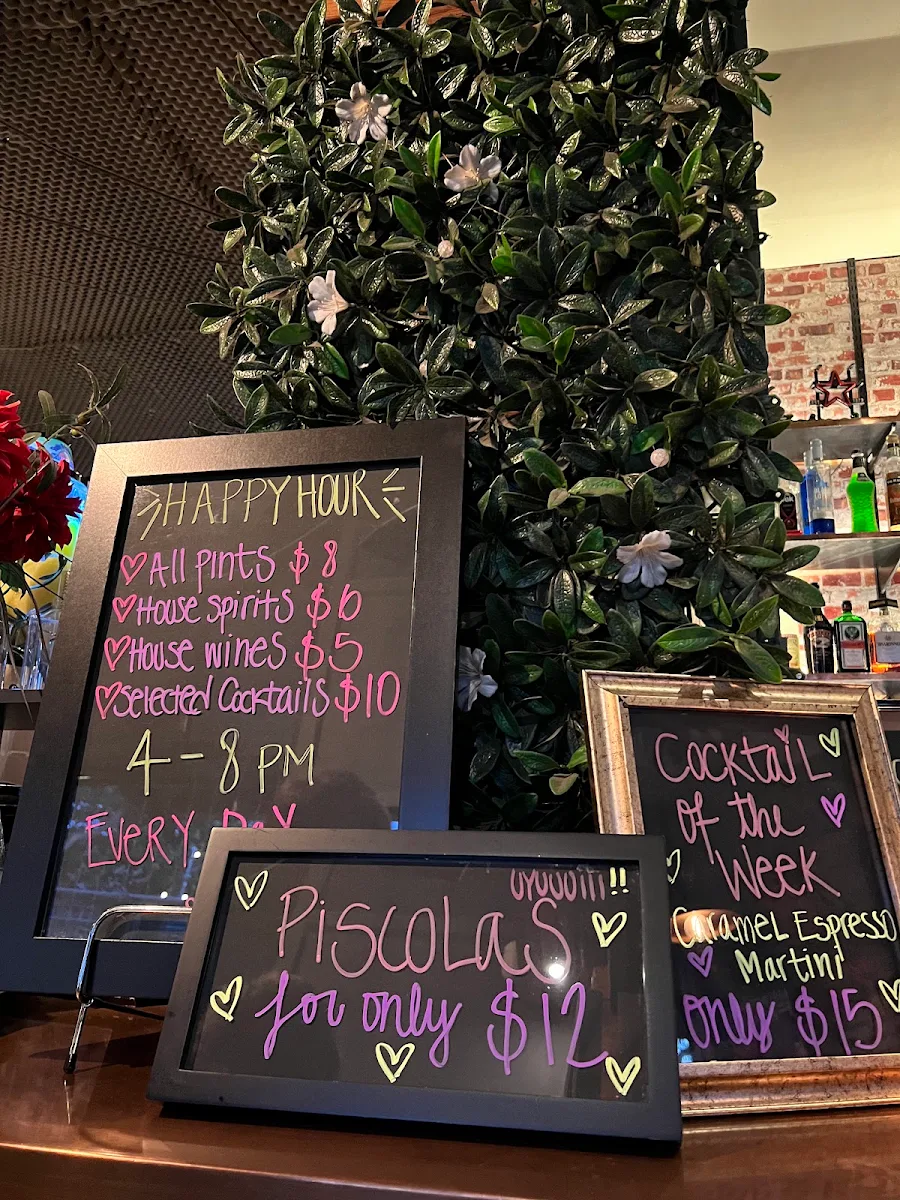 HAPPY HOUR
All pints $8
House spirits $6
House wines $5
Selected Cocktails $10
4-8 PM
EVERY DAY
PiscolaS
for only $12
Cocktail
of the
Week
Caramel Espresso
Martini
only $15